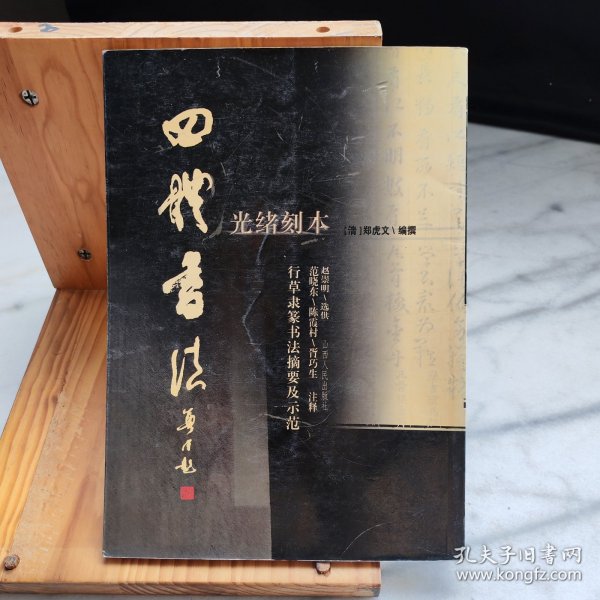 四體書法
光绪刻本
[清]郑虎文\编撰
赵崇明\选供
范晓东\陈霞村\胥巧生 注释
山西人民出版社
行草隶篆书法摘要及示范
孔夫子旧书网
www.kongfz.com